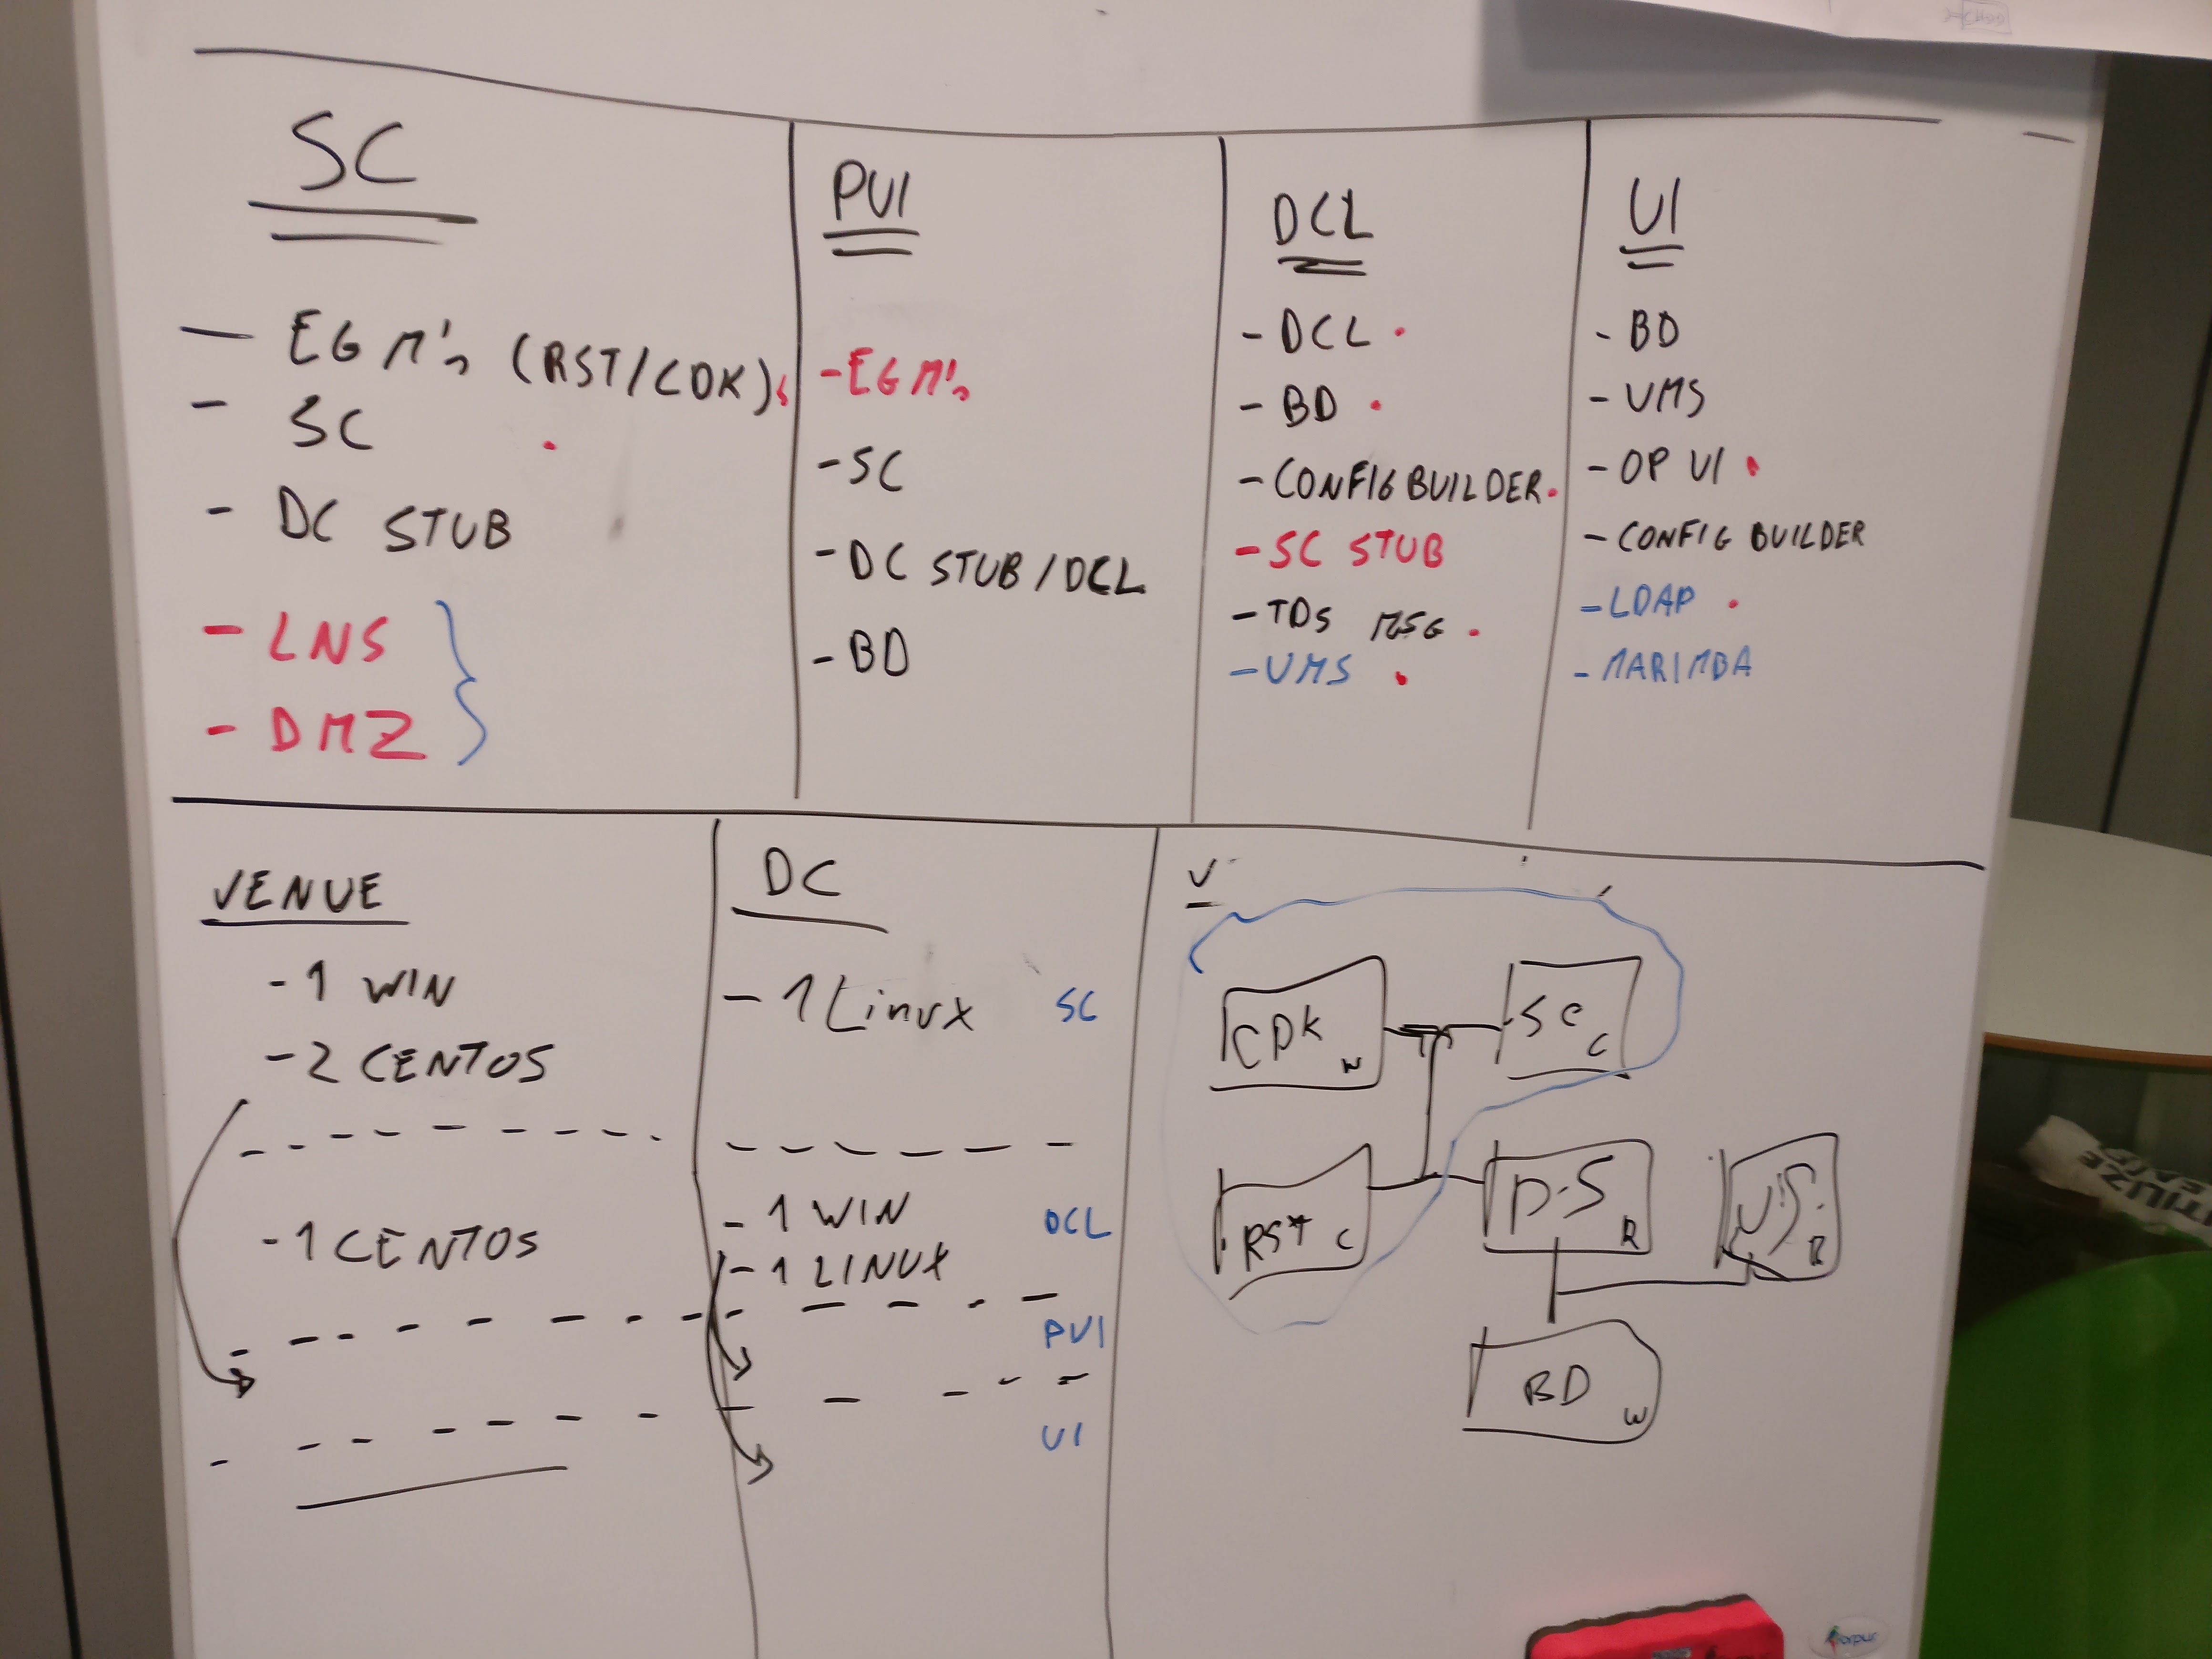 SC
- EGM's (RST/CDK)
- SC
- DC STUB
- LNS
- DMZ
PUI
- EGM's
- SC
- DC STUB / DCL
- BD
DCL
- DCL
- BD
- CONFIG BUILDER
- SC STUB
- TDS MSG
- VMS
UI
- BD
- VMS
- OP UI
- CONFIG BUILDER
- LDAP
- MARIMBA
VENUE
- 1 WIN
- 2 CENTOS
- 1 CENTOS
DC
- 1 Linux SC
- 1 WIN DCL
- 1 LINUX
PUI
UI
V
CDK W
SC C
RST C
D.S R
BD W